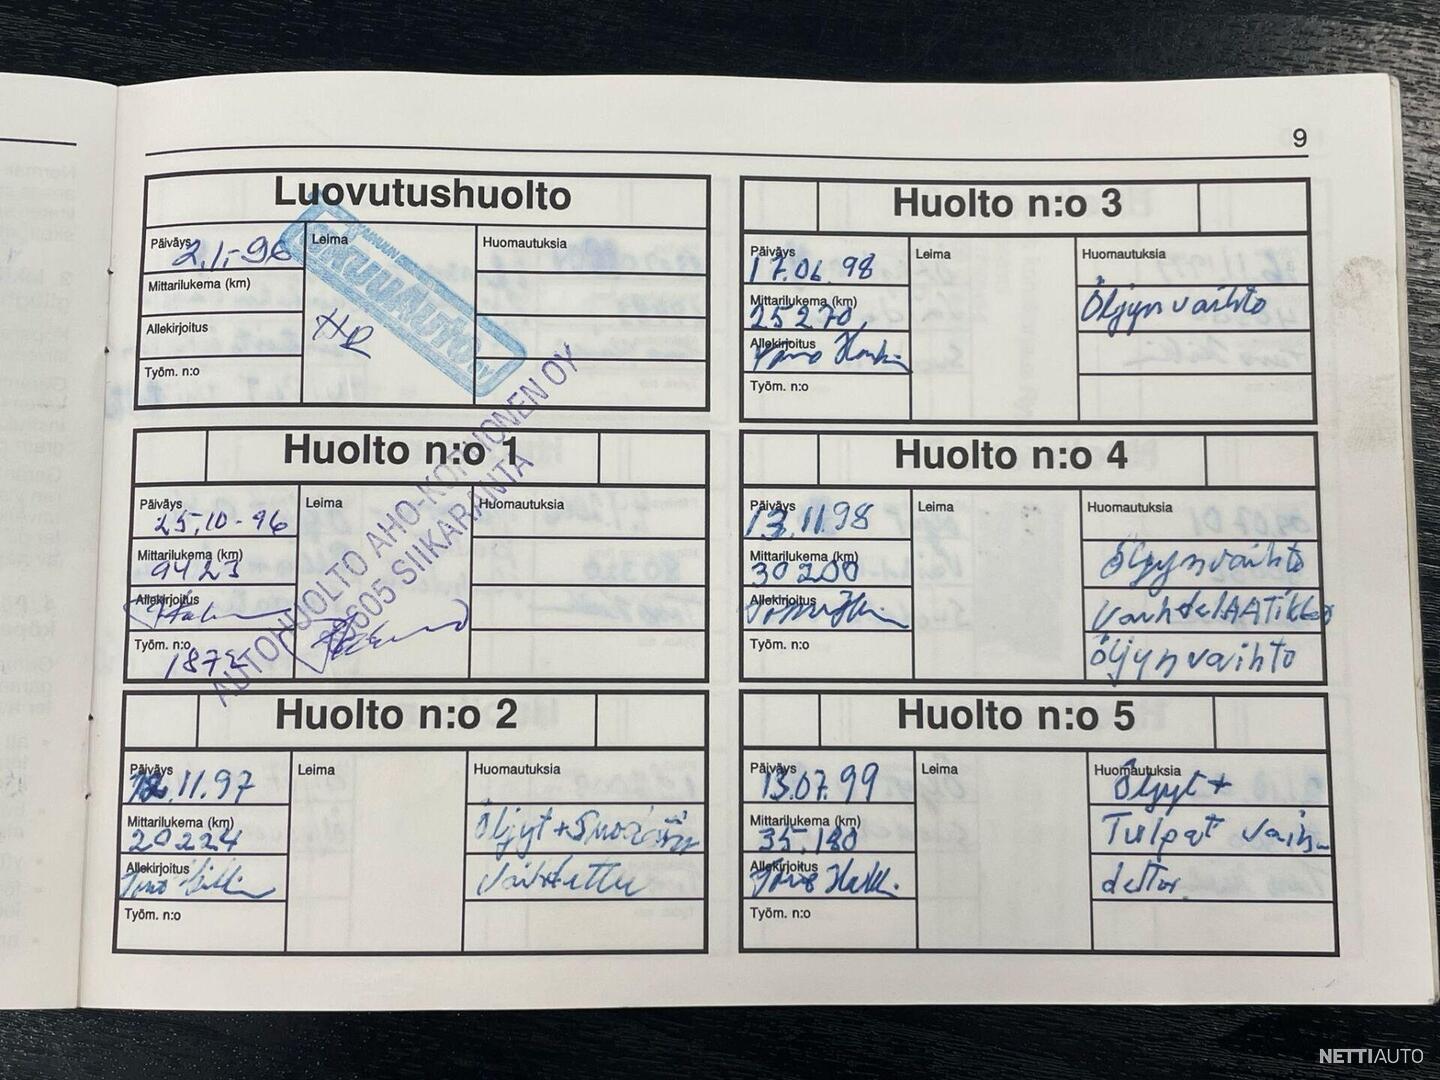 9
Luovutushuolto
Päiväys
2.1.-96
Leima
HR
Huomautuksia
Mittarilukema (km)
Allekirjoitus
Työm. n:o
Huolto n:o 1
Päiväys
25.10-96
Leima
AUTOHUOLTO AHO-KORHONEN OY
SIIKARANTA
Huomautuksia
Mittarilukema (km)
9423
Allekirjoitus
Työm. n:o
1872
Huolto n:o 2
Päiväys
12.11.97
Leima
Huomautuksia
Öljyt + Suodatin
Vaihdettu
Mittarilukema (km)
20224
Allekirjoitus
Työm. n:o
Huolto n:o 3
Päiväys
17.06.98
Leima
Huomautuksia
Öljynvaihto
Mittarilukema (km)
25270
Allekirjoitus
Työm. n:o
Huolto n:o 4
Päiväys
13.11.98
Leima
Huomautuksia
Öljynvaihto
öljynvaihto
Mittarilukema (km)
30200
Allekirjoitus
Työm. n:o
Huolto n:o 5
Päiväys
13.07.99
Leima
Huomautuksia
Öljyt +
Tulpat vaih
dettu
Mittarilukema (km)
35.180
Allekirjoitus
Työm. n:o
NETTIAUTO